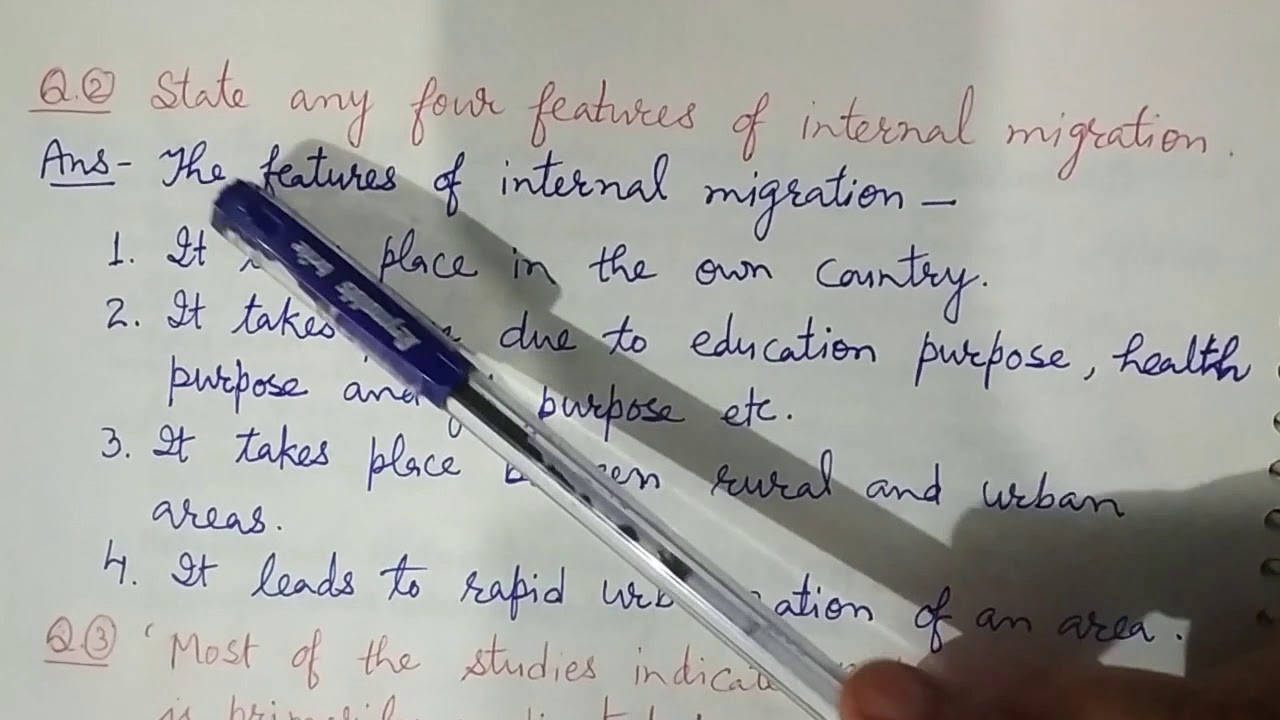 Q.② State any four features of internal migration.
Ans- The features of internal migration —
1. It place in the own country.
2. It takes due to education purpose, health
purpose and purpose etc.
3. It takes place rural and urban
areas.
4. It leads to rapid of an area.
Q.③ 'Most of the studies
is